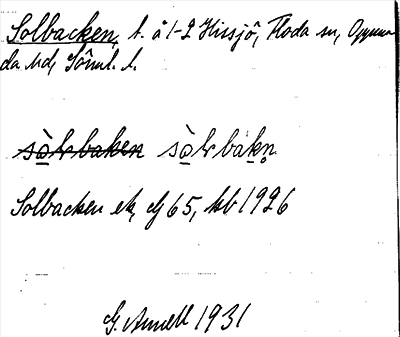 Solbacken, t. å 1-2 Hissjö, Floda sn, Oppun
da hd, Söml. l.
sòlbaken sòlbakn
Solbacken ek, bl 65, kb 1926
G. Arnell 1931